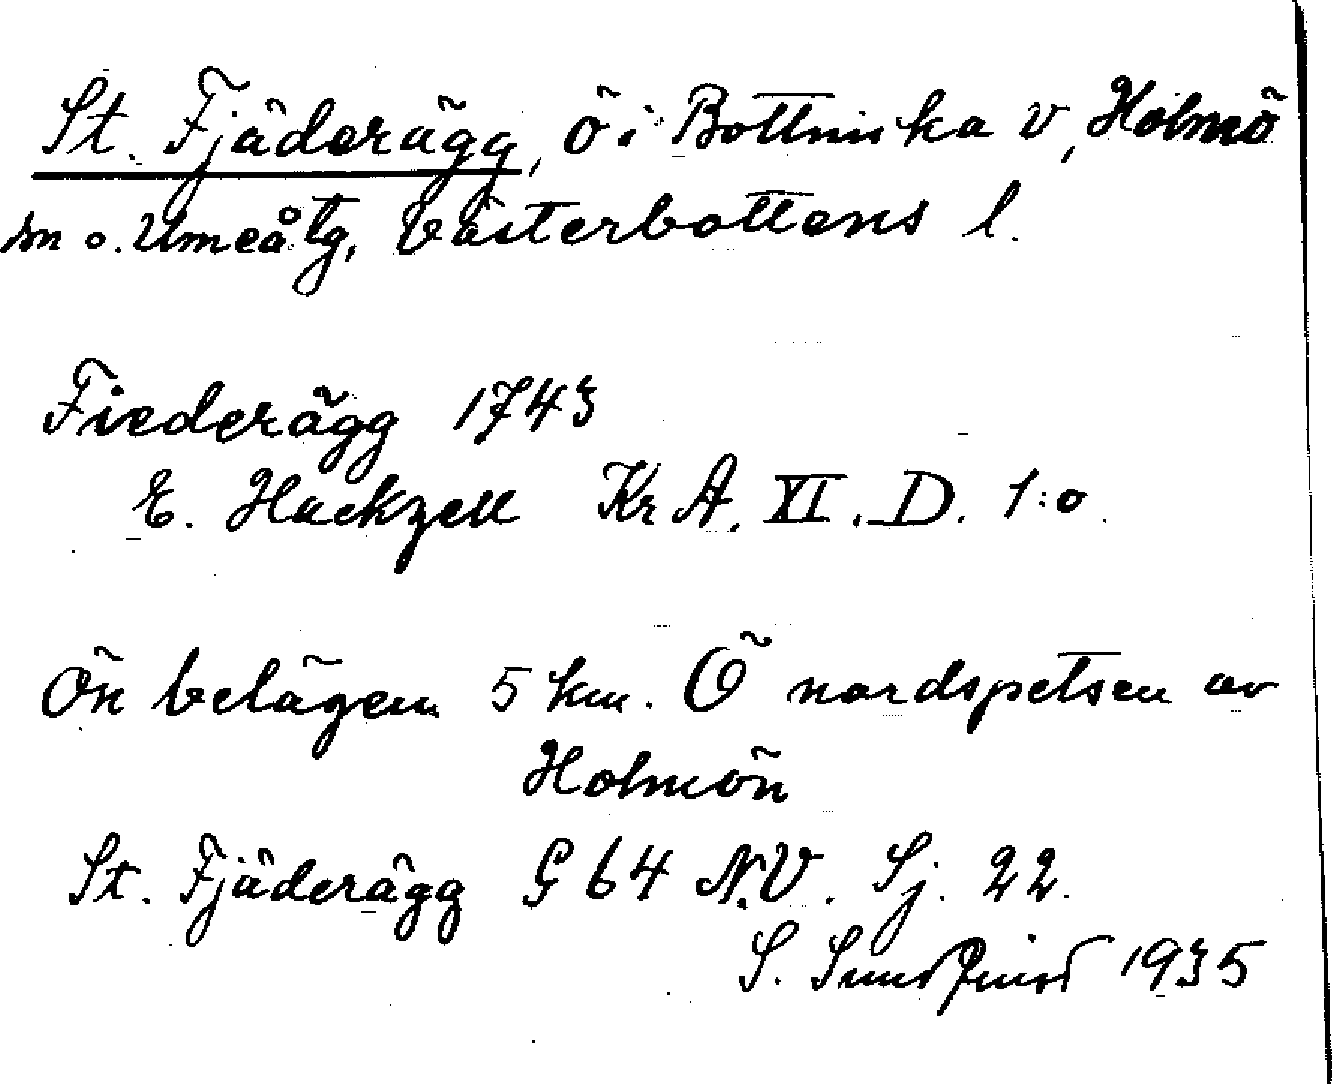 St. Fjäderägg, ö i Bottniska v, Holmö
sn o. Umeå tg, Västerbottens l.
Fiederägg 1743
E. Hackzell Kr A. XI. D. 1:o
Ön belägen 5 km. Ö nordspetsen av
Holmön
St. Fjäderägg G 64 N.V. Sj. 22.
S. Sundquist 1935